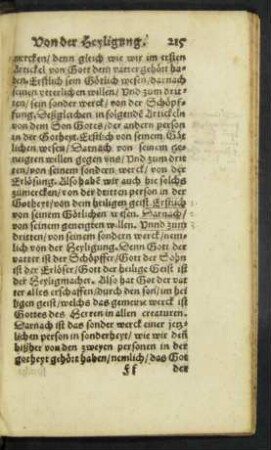 Von der Heyligung. 215
mercken / denn gleich wie wir im ersten
Artickel von Gott dem vatter gehört ha-
ben. Erstlich sein Götlich wesen / darnach
seinen vetterlichen willen / Vnd zum drit-
ten / sein sonder werck / von der Schöpf-
fung. Deßgleichen in folgendē Artickeln
von dem Son Gottes / der andern person
in der Gotheyt. Erstlich von seinem Göt-
lichen wesen / Darnach von seinem ge-
neigten willen gegen vns / Vnd zum drit
ten / von seinem sondern werck / von der
Erlösung. Also habē wir auch hie solchs
zůmercken / von der dritten person in der
Gotheyt / von dem heiligen geist. Erstlich
von seinem Götlichen wesen. Darnach /
von seinem geneigten willen. Vnnd zum
dritten / von seinem sondern werck / nem-
lich von der Heyligung. Denn Gott der
vatter ist der Schöpffer / Gott der Sohn
ist der Erlöser / Gott der heilige Geist ist
der Heyligmacher. Also hat Got der vat
ter alles erschaffen / durch den son / im hei
ligen geist / welchs das gemeine werck ist
Gottes des Herren in allen creaturen.
Darnach ist das sonder werck einer jetz-
lichen person in sonderheyt / wie wir deñ
bißher von den zweyen personen in der
gotheyt gehört haben / nemlich / das Got
der